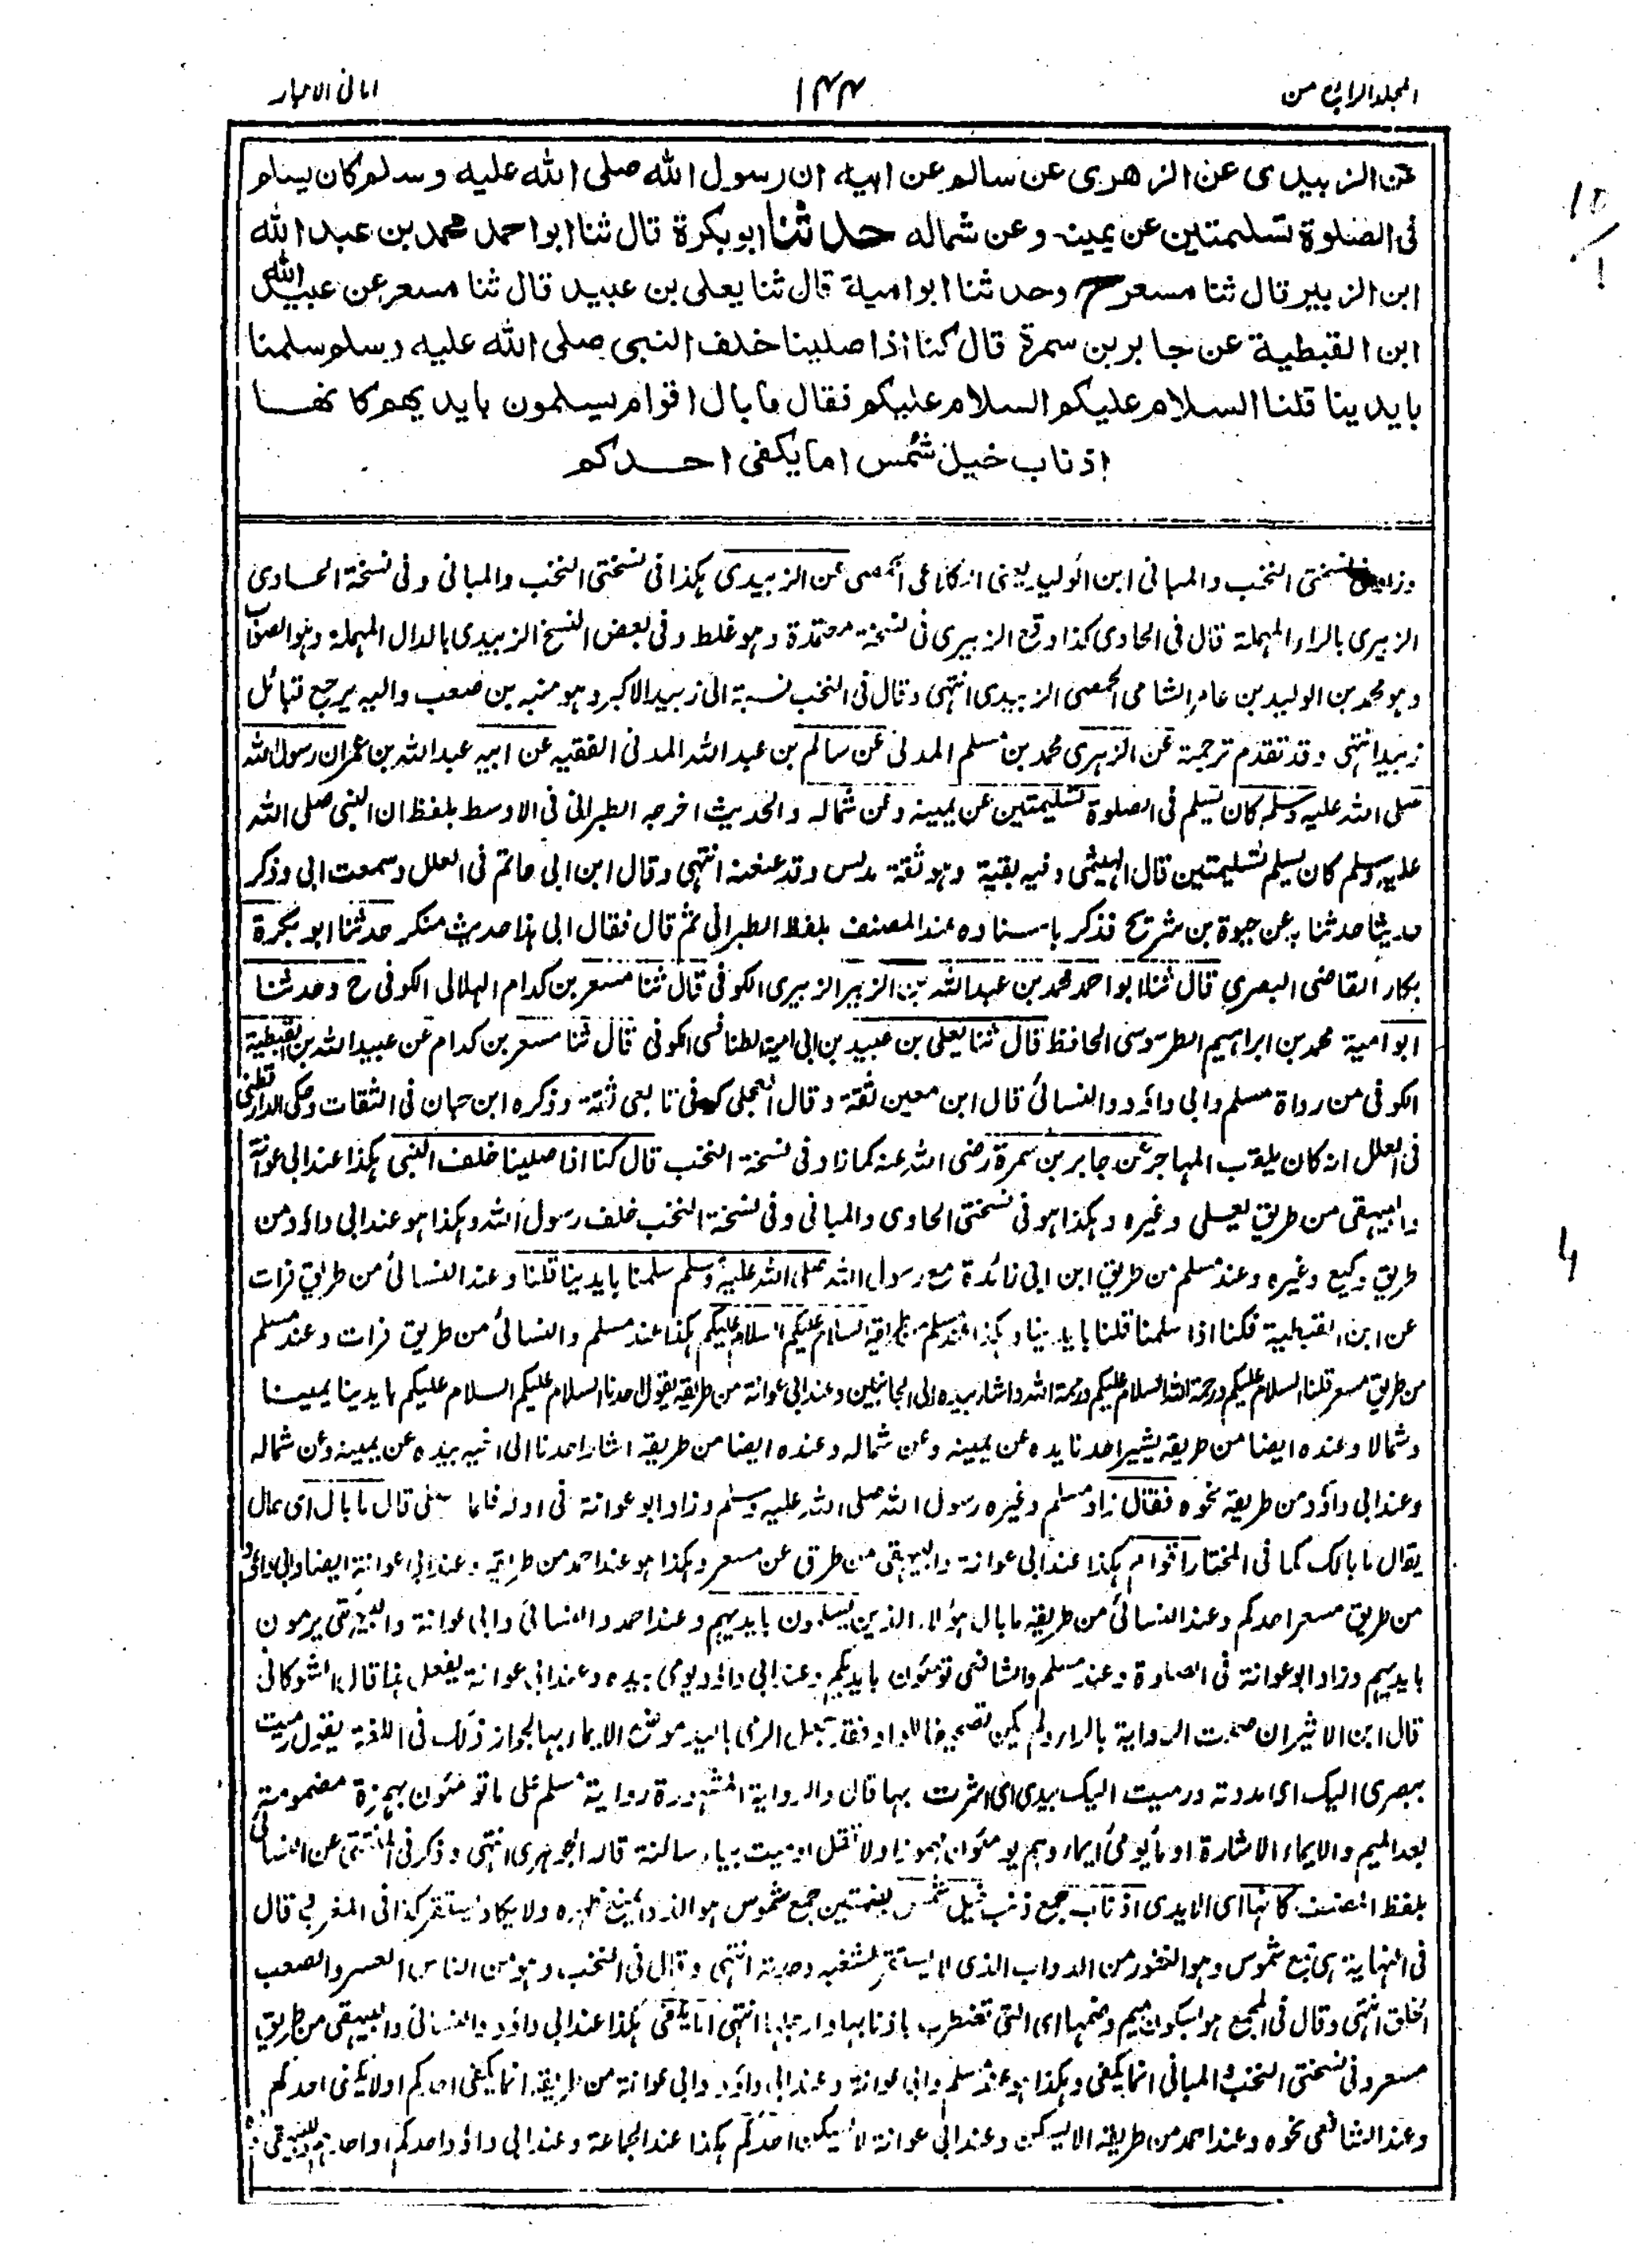 المجلد الرابع من
١٤٤
امانى الاحبار
عن الزبيدى عن الزهرى عن سالم عن ابيه ان رسول الله صلى الله عليه وسلم كان يسلم
فى الصلوة تسليمتين عن يمينه وعن شماله حدثنا ابو بكرة قال ثنا ابو احمد محمد بن عبد الله
ابن الزبير قال ثنا مسعر ح وحدثنا ابو امية قال ثنا يعلى بن عبيد قال ثنا مسعر عن عبيد الله
ابن القبطية عن جابر بن سمرة قال كنا اذا صلينا خلف النبى صلى الله عليه وسلم سلمنا
بايدينا قلنا السلام عليكم السلام عليكم فقال ما بال اقوام يسلمون بايديهم كانها
اذناب خيل شمس اما يكفى احدكم
وزاد فى نسختى النخب والمبانى ابن الوليد يعنى الكلاعى الحمصى عن الزبيدى هكذا فى نسختى النخب والمبانى وفى نسخة الحاوى
الزبيرى بالراء المهملة قال فى الحاوى كذا وقع الزبيرى فى نسخة معتمدة وهو غلط وفى بعض النسخ الزبيدى بالدال المهملة وهو الصواب
وهو محمد بن الوليد بن عامر الشامى الحمصى الزبيدى انتهى وقال فى النخب نسبة الى زبيد الاكبر وهو منبه بن صعب واليه يرجع قبائل
زبيد انتهى وقد تقدم ترجمة عن الزهرى محمد بن مسلم المدنى عن سالم بن عبد الله المدنى الفقيه عن ابيه عبد الله بن عمر ان رسول الله
صلى الله عليه وسلم كان يسلم فى الصلوة تسليمتين عن يمينه وعن شماله والحديث اخرجه الطبرانى فى الاوسط بلفظ ان النبى صلى الله
عليه وسلم كان يسلم تسليمتين قال الهيثمى وفيه بقية وهو ثقة مدلس وقد عنعنه انتهى وقال ابن ابى حاتم فى العلل وسمعت ابى وذكر
حديثا حدثنا به عن حيوة بن شريح فذكر باسناده عند المصنف بلفظ الطبرانى ثم قال فقال ابى هذا حديث منكر حدثنا ابو بكرة
بكار القاضى البصرى قال ثنا ابو احمد محمد بن عبد الله بن الزبير الزبيرى الكوفى قال ثنا مسعر بن كدام الهلالى الكوفى ح وحدثنا
ابو امية محمد بن ابراهيم الطرسوسى الحافظ قال ثنا يعلى بن عبيد بن ابى امية الطنافسى الكوفى قال ثنا مسعر بن كدام عن عبيد الله بن القبطية
الكوفى من رواة مسلم وابى داؤد والنسائى قال ابن معين ثقة وقال العجلى كوفى تابعى ثقة وذكره ابن حبان فى الثقات وحكى الدارقطنى
فى العلل انه كان يلقب المهاجر عن جابر بن سمرة رضى الله عنه كما زاد فى نسخة النخب قال كنا اذا صلينا خلف النبى هكذا عند ابى عوانة
والبيهقى من طريق يعلى وغيره وهكذا هو فى نسختى الحاوى والمبانى وفى نسخة النخب خلف رسول الله وهكذا هو عند ابى داؤد من
طريق وكيع وغيره وعند مسلم من طريق ابن ابى زائدة مع رسول الله صلى الله عليه وسلم سلمنا بايدينا قلنا وعند النسائى من طريق فرات
عن ابن القبطية فكنا اذا سلمنا قلنا بايدينا وكذا عند مسلم من طريقه السلام عليكم السلام عليكم هكذا عند مسلم والنسائى من طريق فرات وعند مسلم
من طريق مسعر قلنا السلام عليكم ورحمة الله السلام عليكم ورحمة الله واشار بيده الى الجانبين وعند ابى عوانة من طريقه يقول احدنا السلام عليكم السلام عليكم بايدينا يمينا
وشمالا وعنده ايضا من طريقه يشير احدنا يده عن يمينه وعن شماله وعنده ايضا من طريقه اشار احدنا الى اخيه بيده عن يمينه وعن شماله
وعند ابى داؤد من طريقه نحوه فقال زاد مسلم وغيره رسول الله صلى الله عليه وسلم وزاد ابو عوانة فى اوله فلما صلى قال ما بال اى حال
يقال ما بالك كما فى المختار اقوام هكذا عند ابى عوانة والبيهقى من طرق عن مسعر وهكذا هو عند احمد من طريقه وعند ابى عوانة ايضا وابى داؤد
من طريق مسعر احدكم وعند النسائى من طريقه ما بال هؤلاء الذين يسلمون بايديهم وعند احمد والنسائى وابى عوانة والبيهقى يرمون
بايديهم وزاد ابو عوانة فى الصلوة وعند مسلم والشافعى تومئون بايديكم وعند ابى داؤد يومى بيده وعند ابى عوانة يفعل هذا قال الشوكانى
قال ابن الاثير ان صحت الرواية بالراء ولم يكن تصحيفا للواو فقد جعل الرمى باليد موضع الايماء بها لجواز ذلك فى اللغة يقول رميت
ببصرى اليك اى مددته ورميت اليك بيدى اى اشرت بها قال والرواية المشهورة رواية مسلم على ما تومئون بهمزة مضمومة
بعد الميم والايماء الاشارة اومأ يومئ ايماء وهم يومئون مهموزا ولا تقل اوميت بياء ساكنة قاله الجوهرى انتهى وذكر فى المنتقى عن النسائى
بلفظ المصنف كانها اى الايدى اذناب جمع ذنب خيل شمس بضمتين جمع شموس هو الذى يمنع ظهره ولا يكاد يستقر كذا فى المغرب قال
فى النهاية هى جمع شموس وهو النفور من الدواب الذى لا يستقر لشغبه وحدته انتهى وقال فى النخب وهو من الناس العسر والصعب
الخلق انتهى وقال فى المجمع هو بسكون ميم وضمها اى التى تضطرب باذنابها وارجلها انتهى اما يكفى هكذا عند ابى داؤد والنسائى والبيهقى من طريق
مسعر وفى نسختى النخب والمبانى انما يكفى وهكذا هو عند مسلم وابى عوانة وعند ابى داؤد وابى عوانة من طريقه انما يكفى احدكم اولا يكفى احدكم
وعند الشافعى نحوه وعند احمد من طريقه الا يسكن وعند ابى عوانة لا يسكن احدكم هكذا عند الجماعة وعند ابى داؤد واحدكم او احدهم وللبيهقى